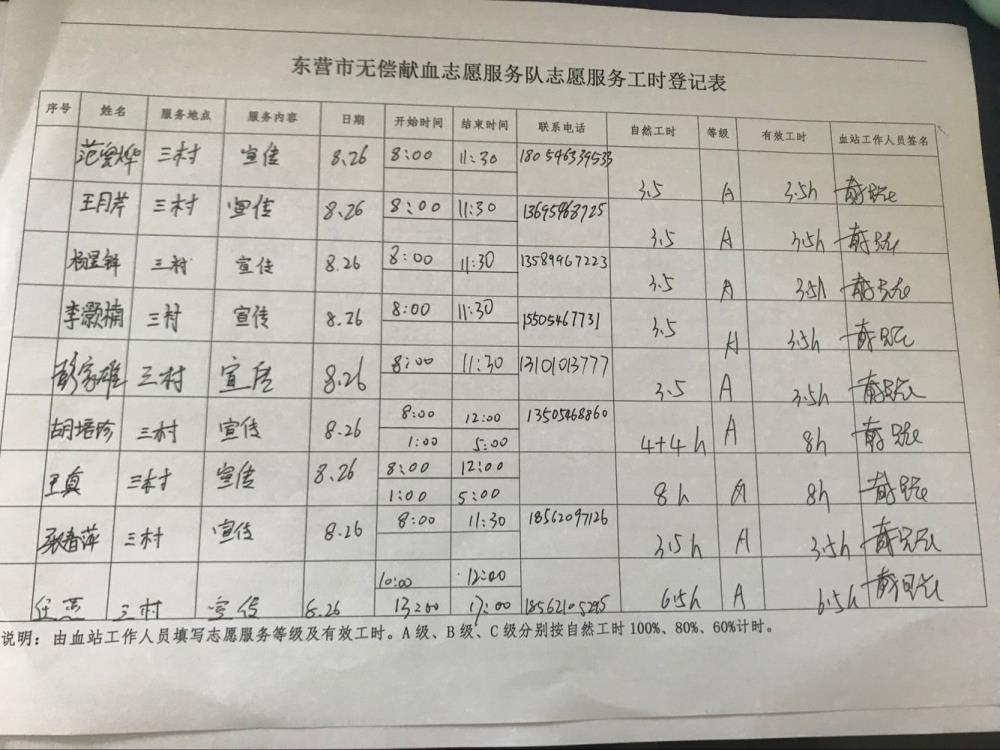 东营市无偿献血志愿服务队志愿服务工时登记表
序号 姓名 服务地点 服务内容 日期 开始时间 结束时间 联系电话 自然工时 等级 有效工时 血站工作人员签名
三村 宣传 8.26 8:00 11:30 180546339533 3.5 A 3.5h
王月芹 三村 宣传 8.26 8:00 11:30 13695468725 3.5 A 3.5h
三村 宣传 8.26 8:00 11:30 13589967223 3.5 A 3.5h
李灏楠 三村 宣传 8.26 8:00 11:30 15505467731 3.5 A 3.5h
彭家雄 三村 宣传 8.26 8:00 11:30 13101013777 3.5 A 3.5h
胡培珍 三村 宣传 8.26 8:00 12:00 13505468860 4+4h A 8h
1:00 5:00
王真 三村 宣传 8.26 8:00 12:00 8h A 8h
1:00 5:00
张春萍 三村 宣传 8.26 8:00 11:30 18562097126 3.5h A 3.5h
三村 宣传 8.26 10:00 12:00 18562105295 6.5h A 6.5h
17:00
说明：由血站工作人员填写志愿服务等级及有效工时。A级、B级、C级分别按自然工时100%、80%、60%计时。